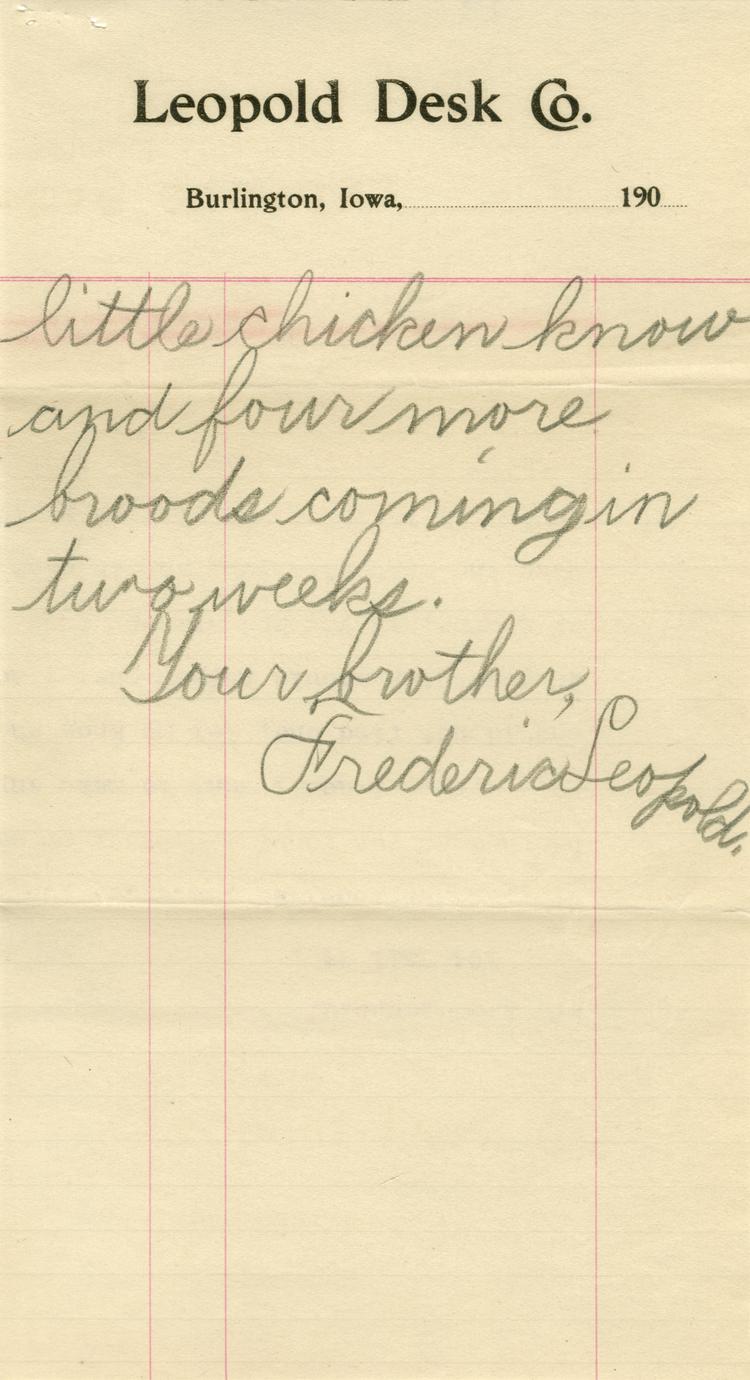 Leopold Desk Co.
Burlington, Iowa, 190
little chicken know
and four more
broods coming in
two weeks.
Your brother,
Frederic Leopold.